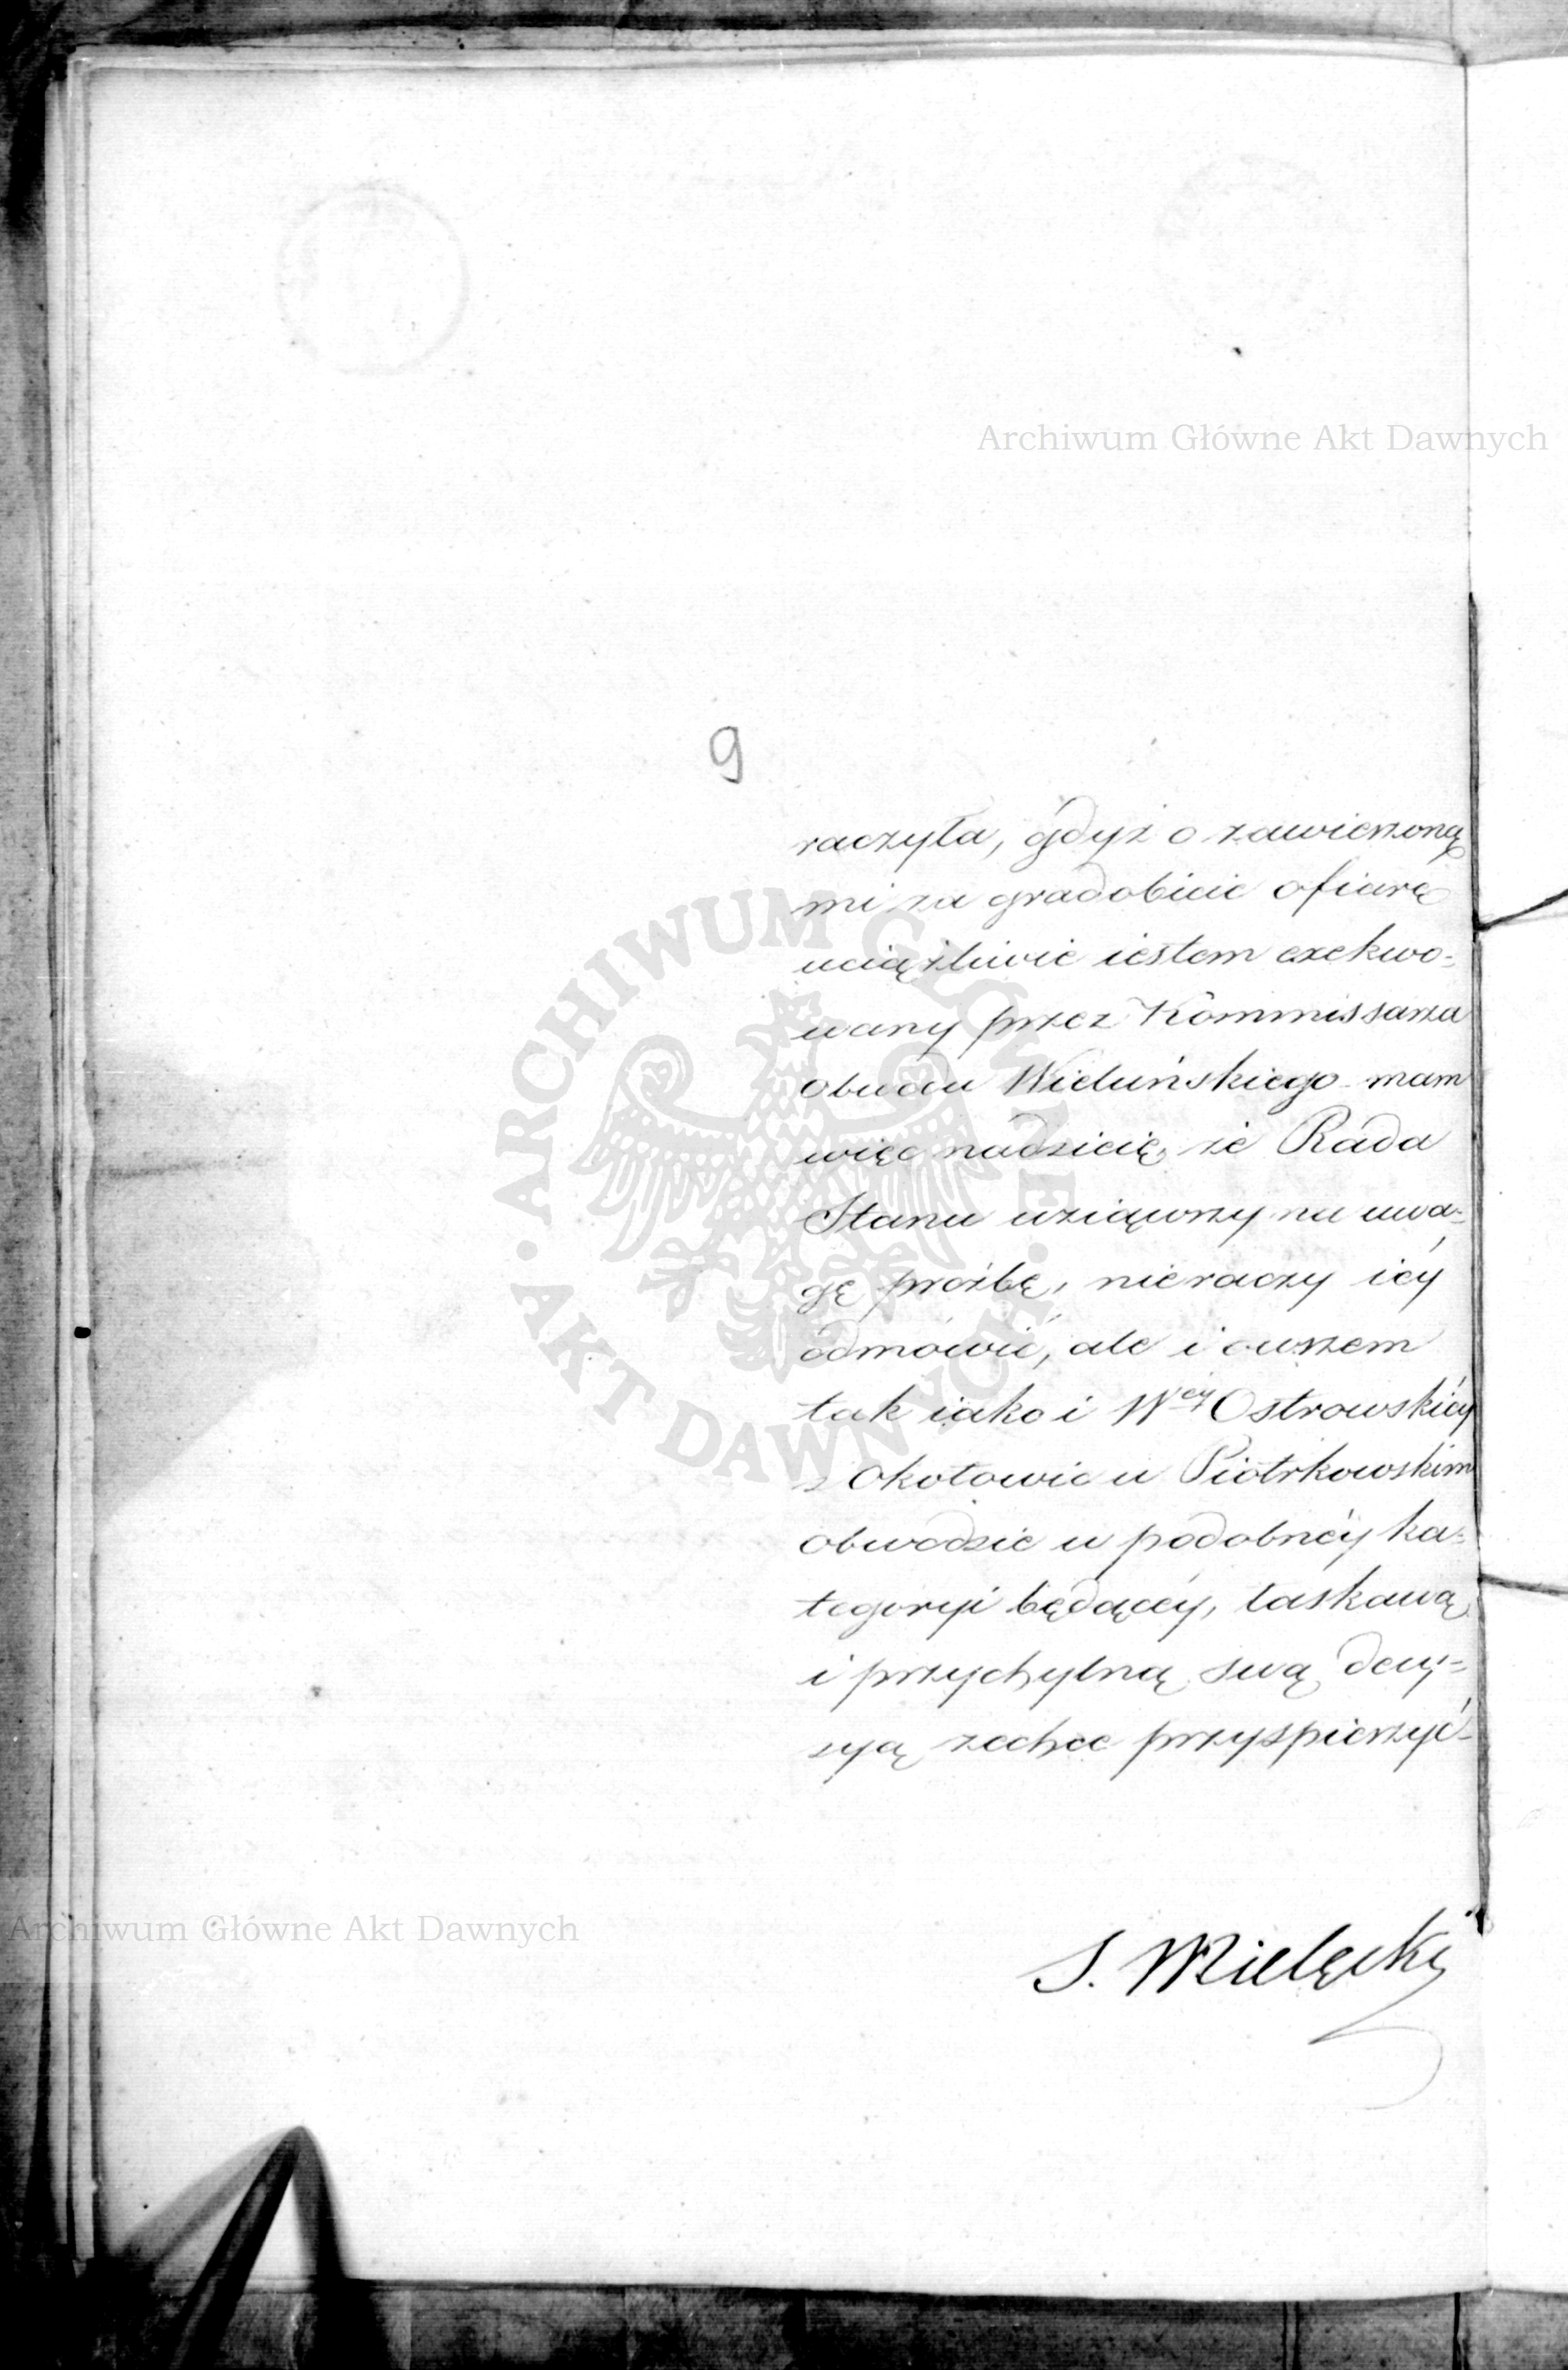 Archiwum Główne Akt Dawnych
9
raczyła, gdyż o zawieszoną
mi za gradobicie ofiarę
uciążliwie iestem exekwo-
wany przez Kommissarza
Obwodu Wieluńskiego mam
więc nadzieię, że Rada
Stanu wziąwszy na uwa-
gę prożbę, nieraczy iéy
odmówić, ale i owszem
tak iako i Wéy Ostrowskiéy
z Okołowic w Piotrkowskim
obwodzie w podobnéy ka-
tegoryi będącéy, łaskawą
i przychylną swą decy-
zyą zechce przyspieszyć
S. Mielęcki
ARCHIWUM GŁÓWNE
AKT DAWNYCH
Archiwum Główne Akt Dawnych